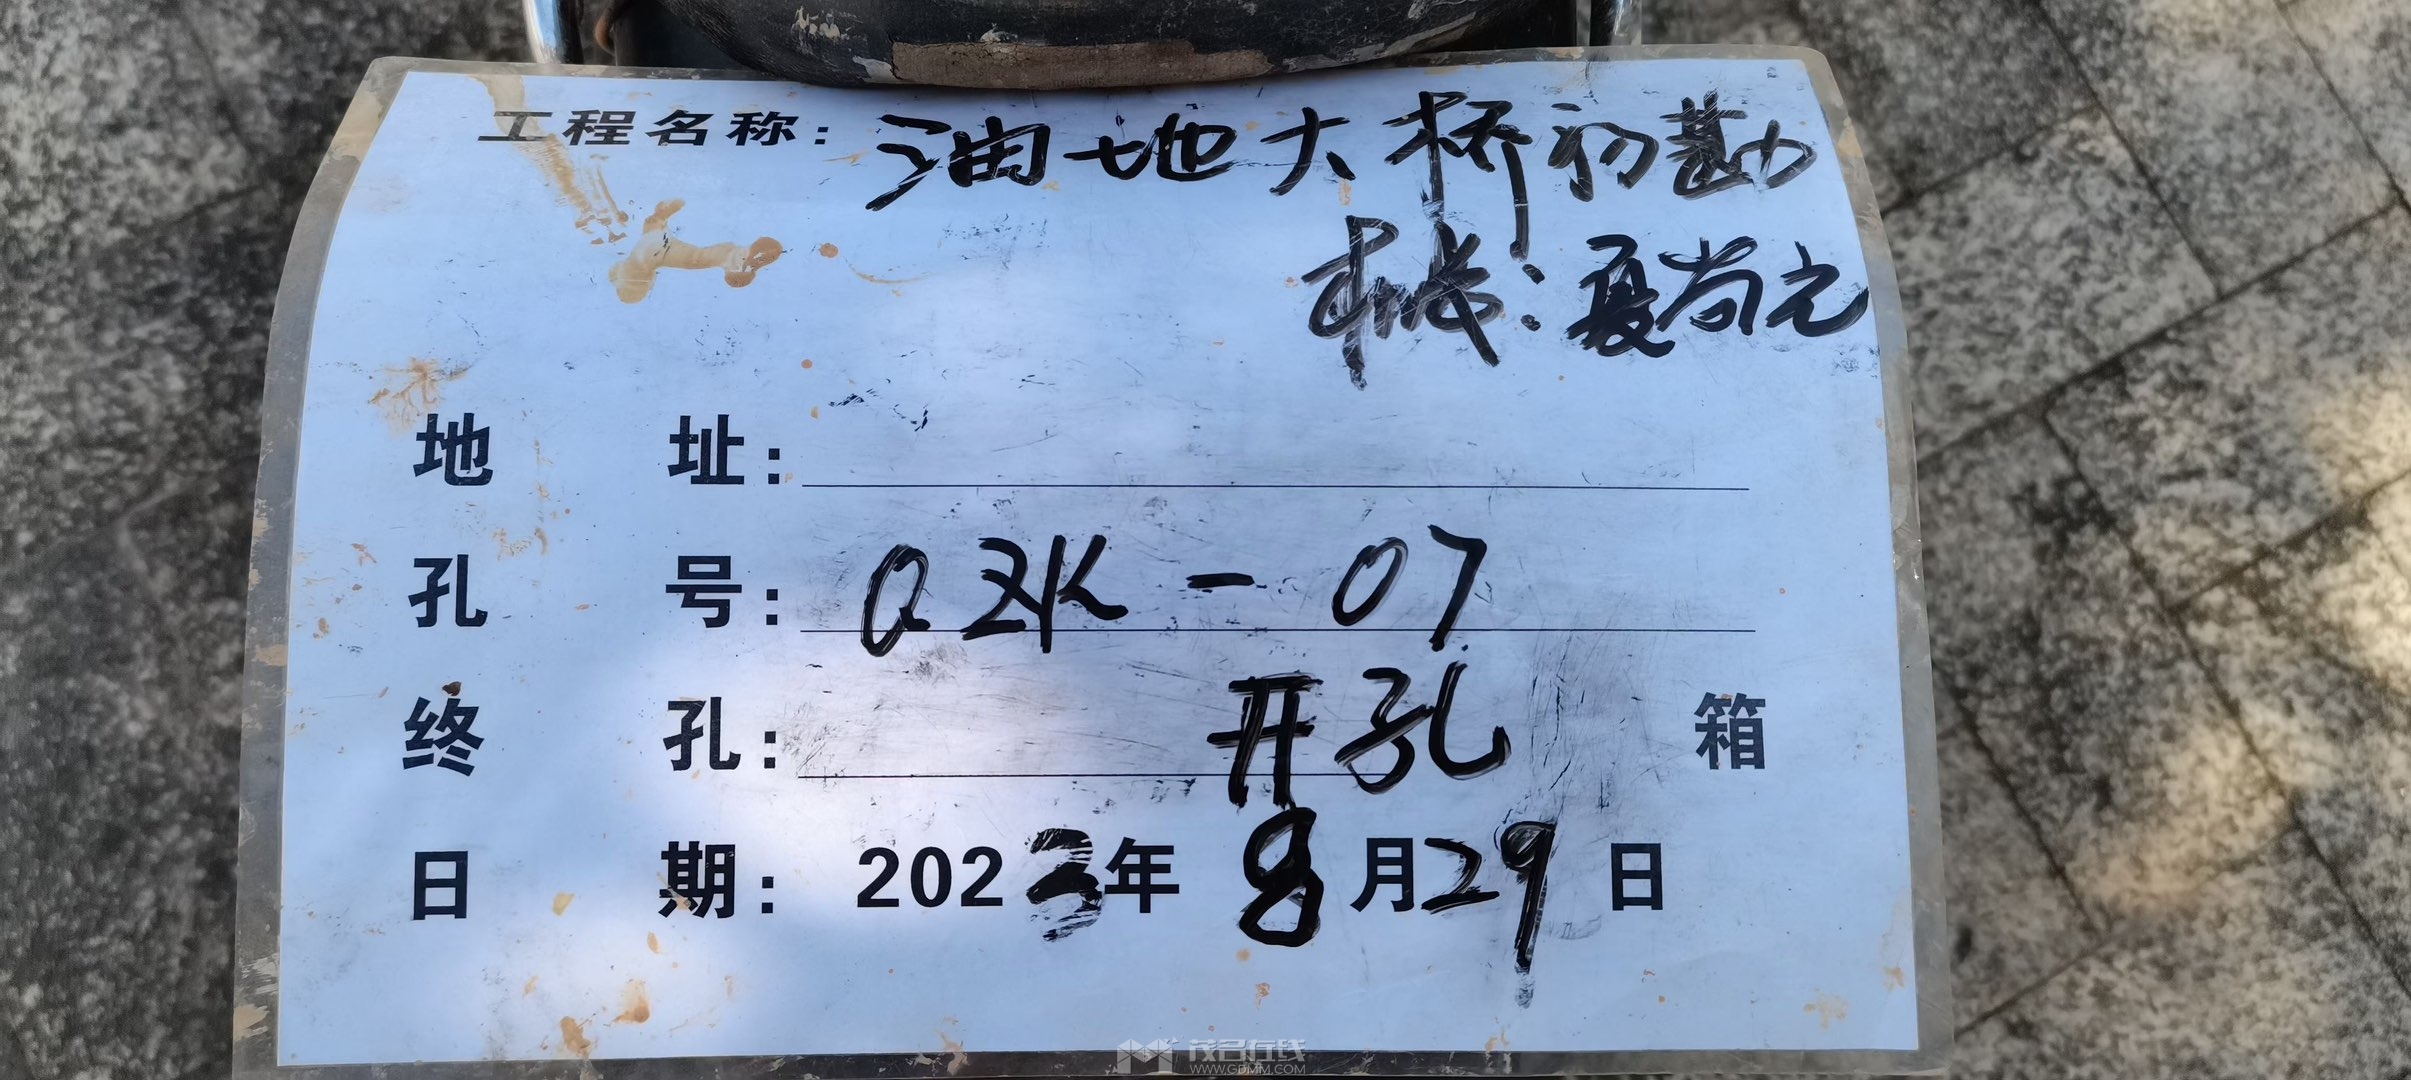 工程名称：油地大桥初勘
机长：夏尚元
地址：
孔号：QZK-07
终孔：开孔 箱
日期：2023年8月29日
茂名在线
WWW.GDMM.COM